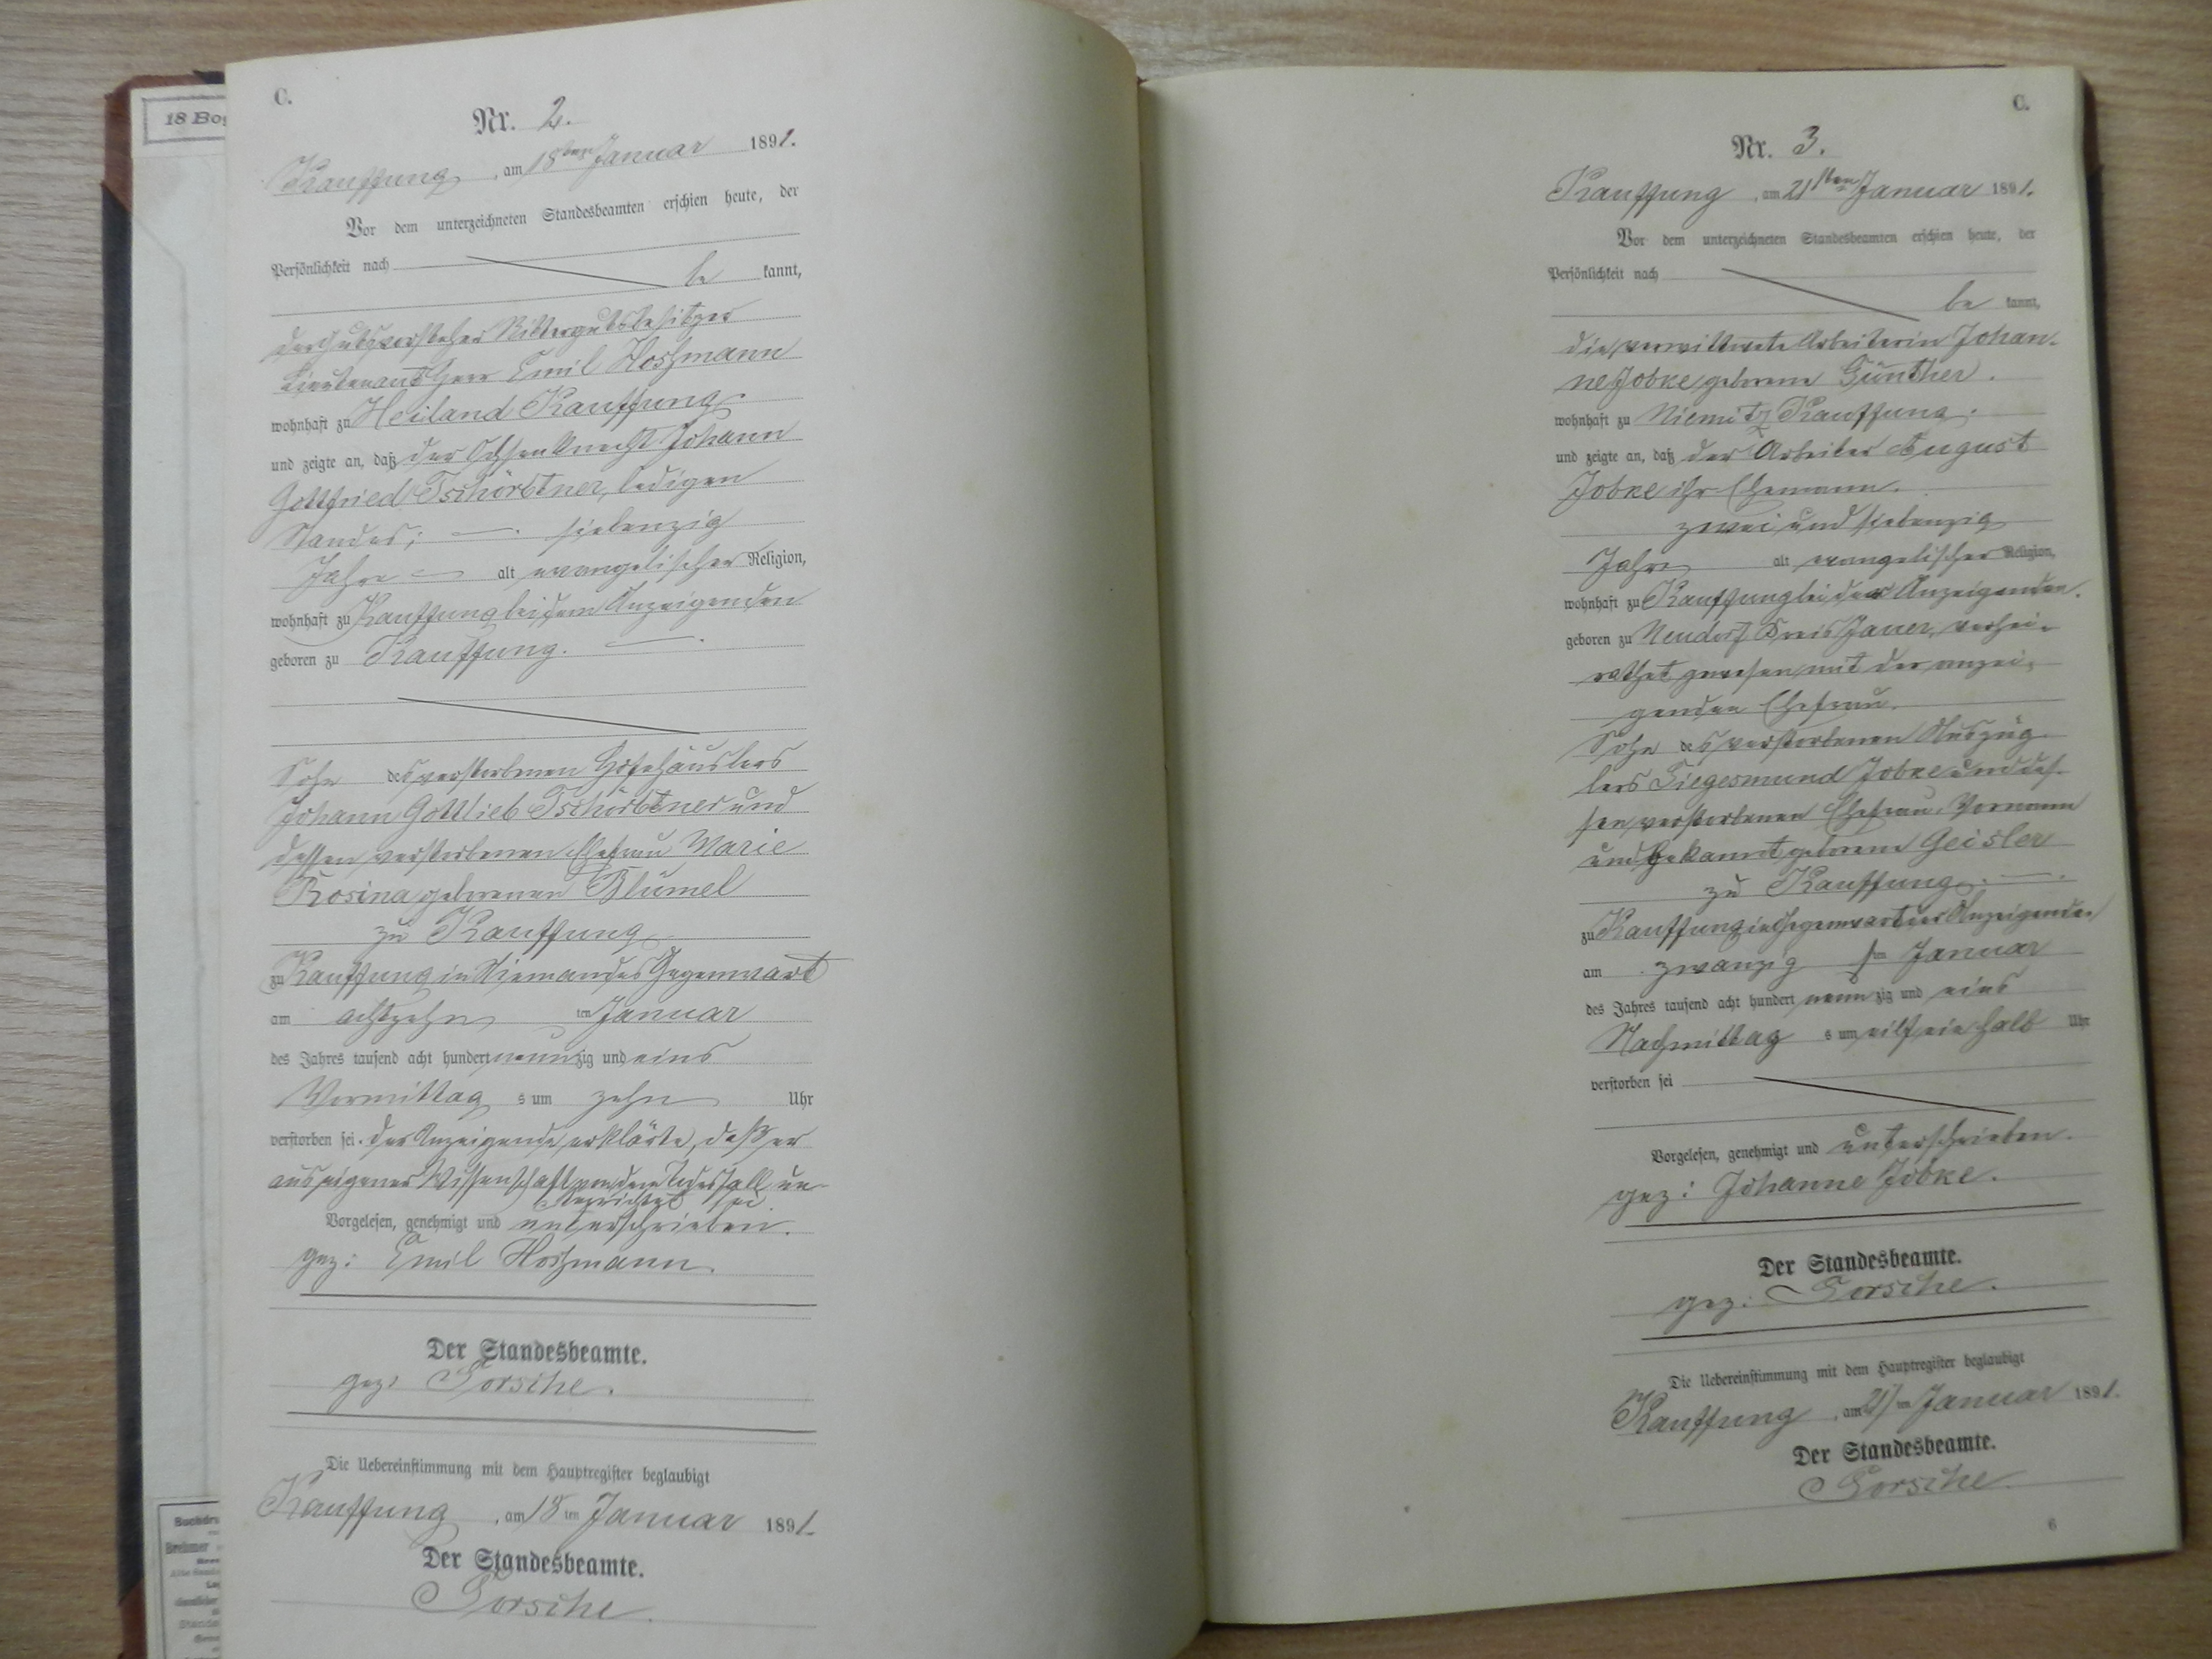 18 Bog
C.
Nr. 2.
Kauffung, am 18ten Januar 1891.
Vor dem unterzeichneten Standesbeamten erschien heute, der
Persönlichkeit nach
be kannt,
der Gutsvorsteher Rittergutsbesitzer
Lieutenant Herr Emil
wohnhaft zu Heiland Kauffung.
und zeigte an, daß der Ochsenknecht Johann
Gottfried Tschörtner, ledigen
Standes; siebenzig
Jahre alt evangelischer Religion,
wohnhaft zu Kauffung bei dem Anzeigenden
geboren zu Kauffung.
Sohn des verstorbenen Hofehäuslers
Johann Gottlieb Tschörtner und
dessen verstorbenen Ehefrau Marie
Rosina geborenen Blümel
zu Kauffung
zu Kauffung in Niemandes Gegenwart
am achtzehn ten Januar
des Jahres tausend acht hundert neunzig und eins
Vormittag s um zehn Uhr
verstorben sei. Der Anzeigende erklärte, daß er
aus eigener Wissenschaft von dem Todesfall un-
terrichtet sei.
Vorgelesen, genehmigt und unterschrieben.
gez: Emil
Der Standesbeamte.
gez: Gorsche.
Die Uebereinstimmung mit dem Hauptregister beglaubigt
Kauffung, am 18 ten Januar 1891.
Der Standesbeamte.
Gorsche.
C.
Nr. 3.
Kauffung, am 21sten Januar 1891.
Vor dem unterzeichneten Standesbeamten erschien heute, der
Persönlichkeit nach
be kannt,
die verwittwete Arbeiterin Johan-
ne Jobke geborene Günther.
wohnhaft zu Niemitz Kauffung.
und zeigte an, daß der Arbeiter August
Jobke ihr Ehemann.
zwei und siebenzig
Jahre alt evangelischer Religion,
wohnhaft zu Kauffung bei der Anzeigenden.
geboren zu Neudorf Kreis Jauer, verhei-
rathet gewesen mit der anzei-
genden Ehefrau.
Sohn des verstorbenen Auszüg-
lers Siegesmund Jobke und des-
sen verstorbenen Ehefrau, Vorname
unbekannt geborene Geisler
zu Kauffung.
zu Kauffung in Gegenwart der Anzeigenden
am zwanzig sten Januar
des Jahres tausend acht hundert neunzig und eins
Nachmittag s um eilf ein halb Uhr
verstorben sei
Vorgelesen, genehmigt und unterschrieben.
gez: Johanne Jobke.
Der Standesbeamte.
gez: Gorsche.
Die Uebereinstimmung mit dem Hauptregister beglaubigt
Kauffung, am 21 ten Januar 1891.
Der Standesbeamte.
Gorsche.
6